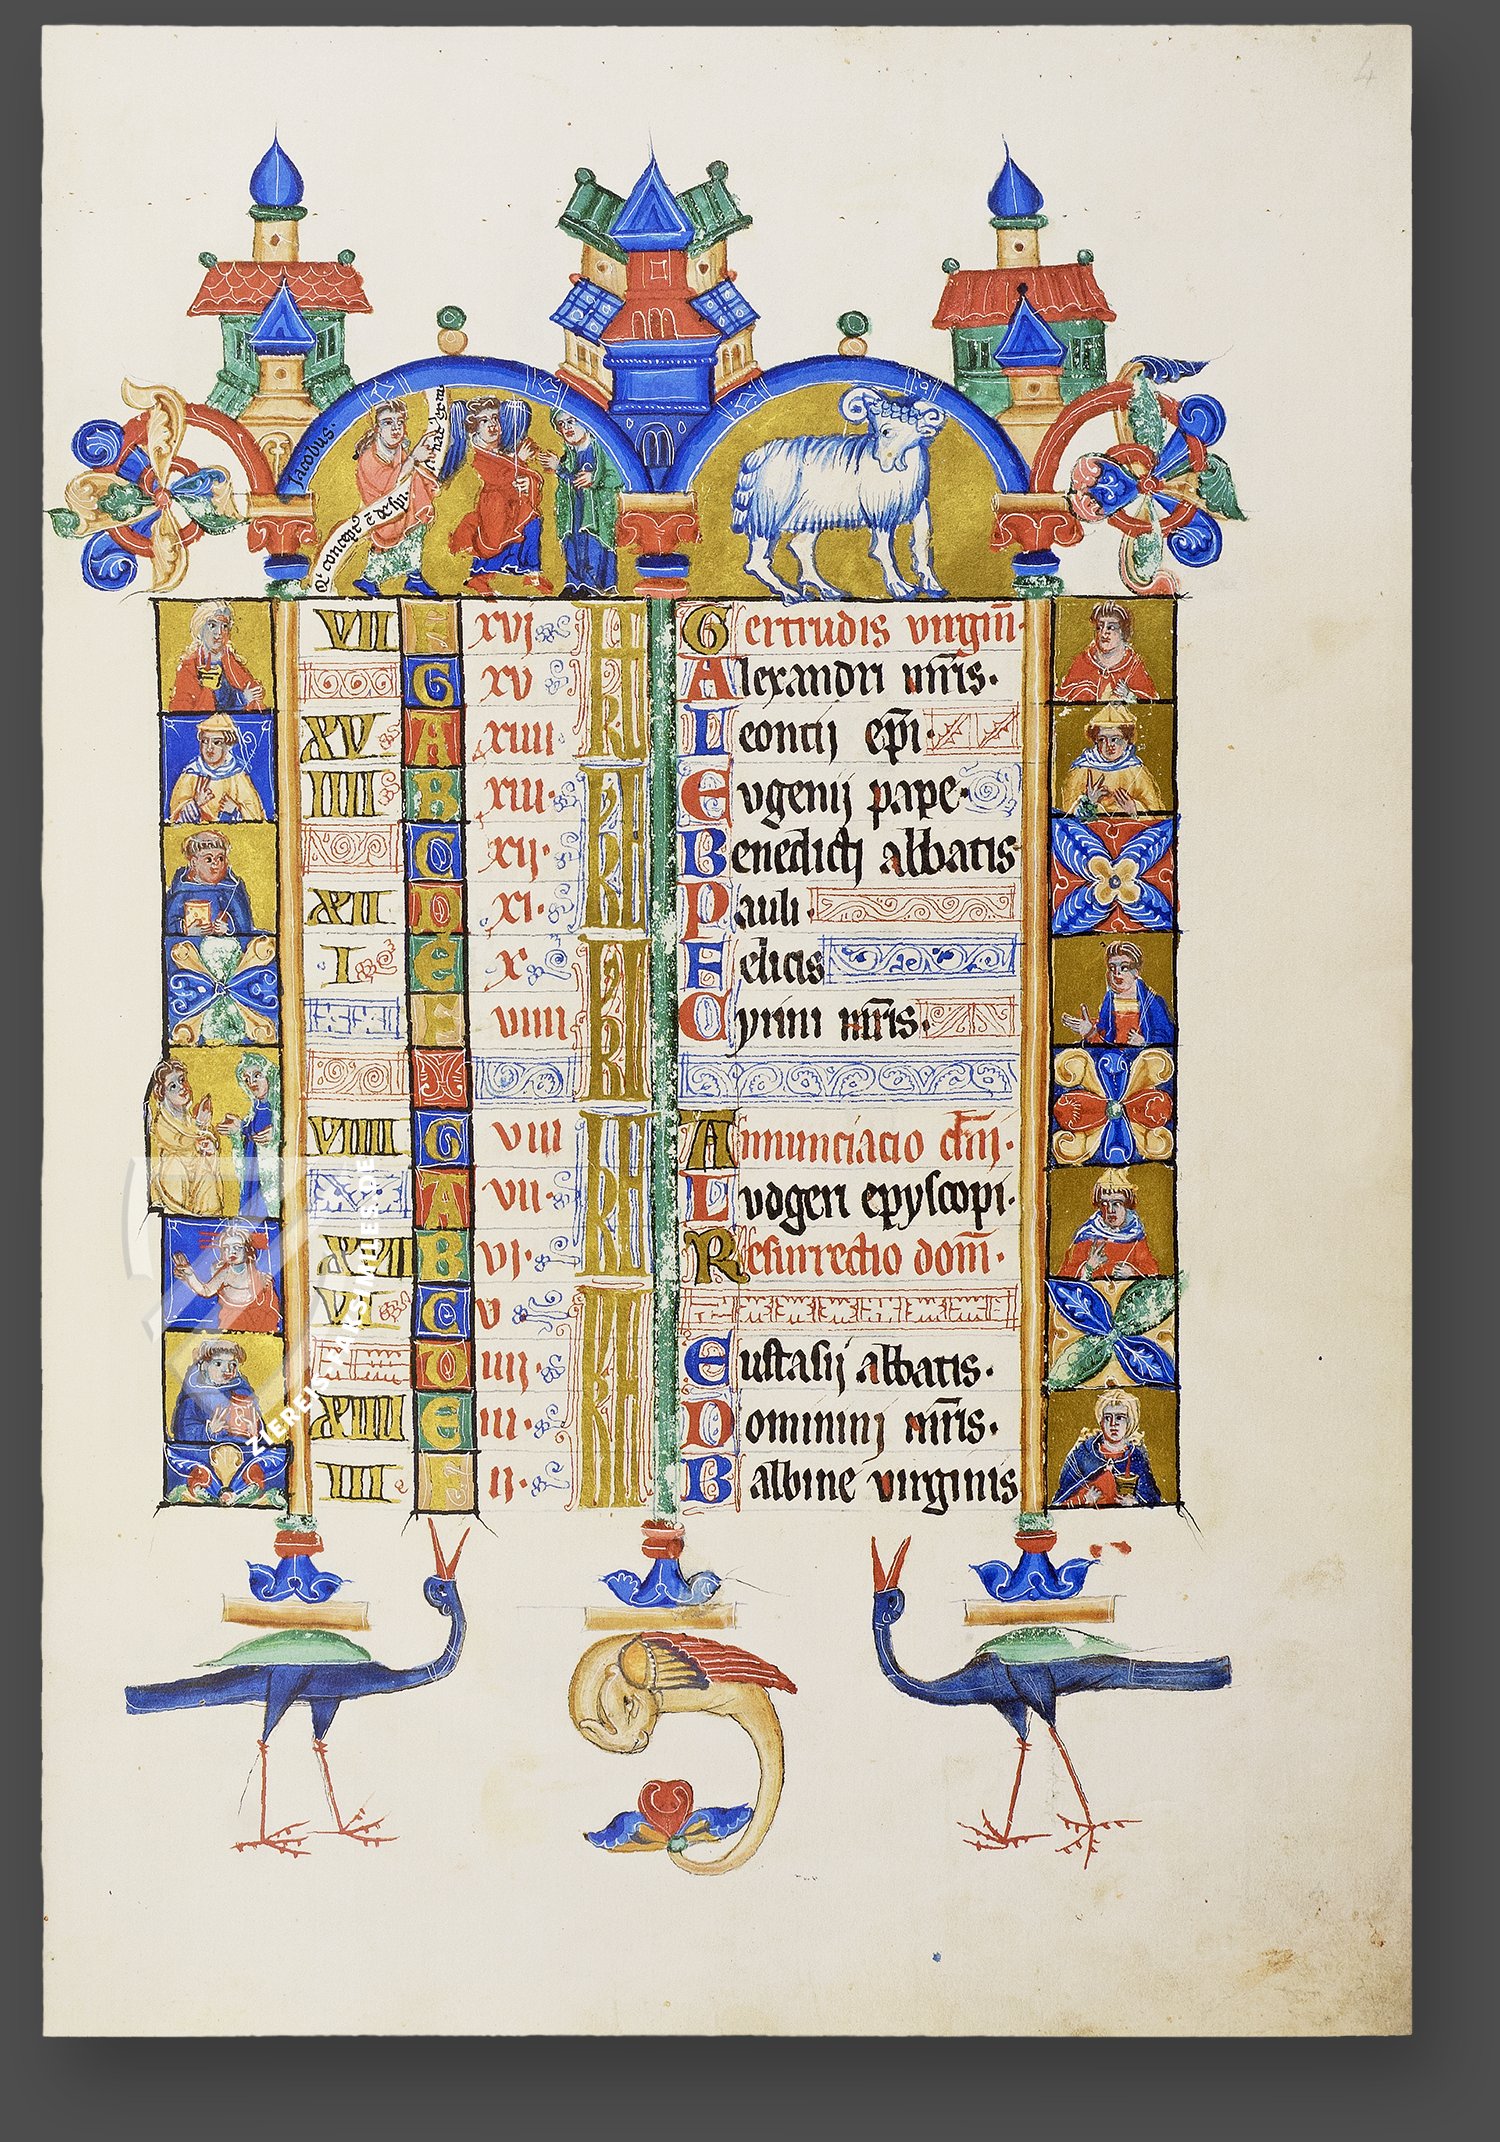 4
Jacobus.
Q' concept' ē de spū.
VII F xvj KL Gertrudis virgīn̄.
G xv KL Alexandri mr̄is.
XV A xiiii KL Leoncij ep̄i.
IIII B xiii. KL Evgenij pape.
C xij. KL Benedicti abbatis
XII D .xi. KL Pauli.
.I. E .x. KL Felicis
F viiii KL Cyrini mr̄is.
VIIII G viii KL Annunciacio dn̄i.
A vii. KL Lvdgeri epyscopi.
XVII B vj. KL Resurrectio dom̄.
VI C v KL
D iiij. KL Eustasij abbatis.
XIIII E iii. KL Dominini mr̄is.
III F ii. KL Balbine virginis
ZIEREIS FAKSIMILES.DE